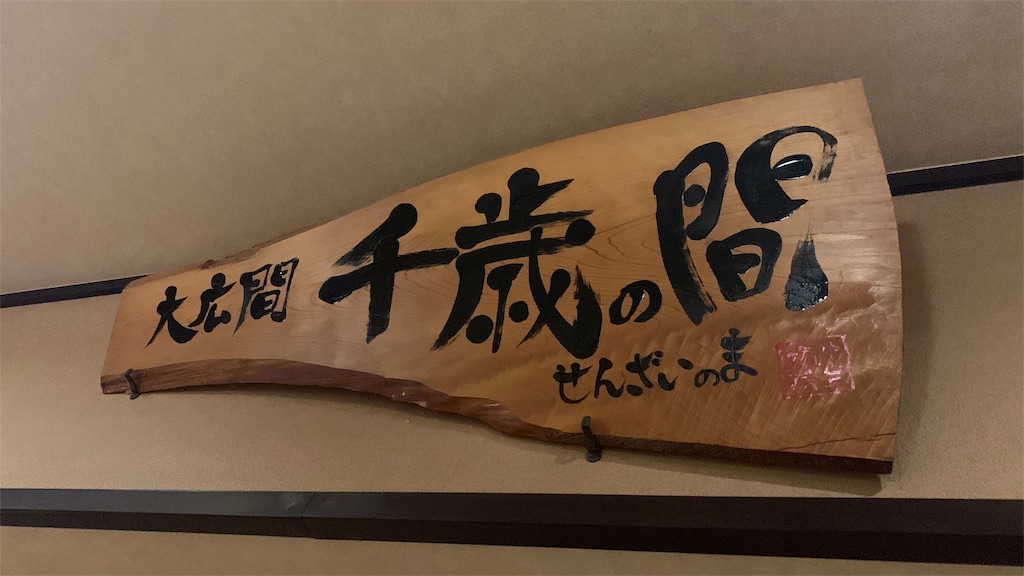 大広間 千歳の間
せんざいのま